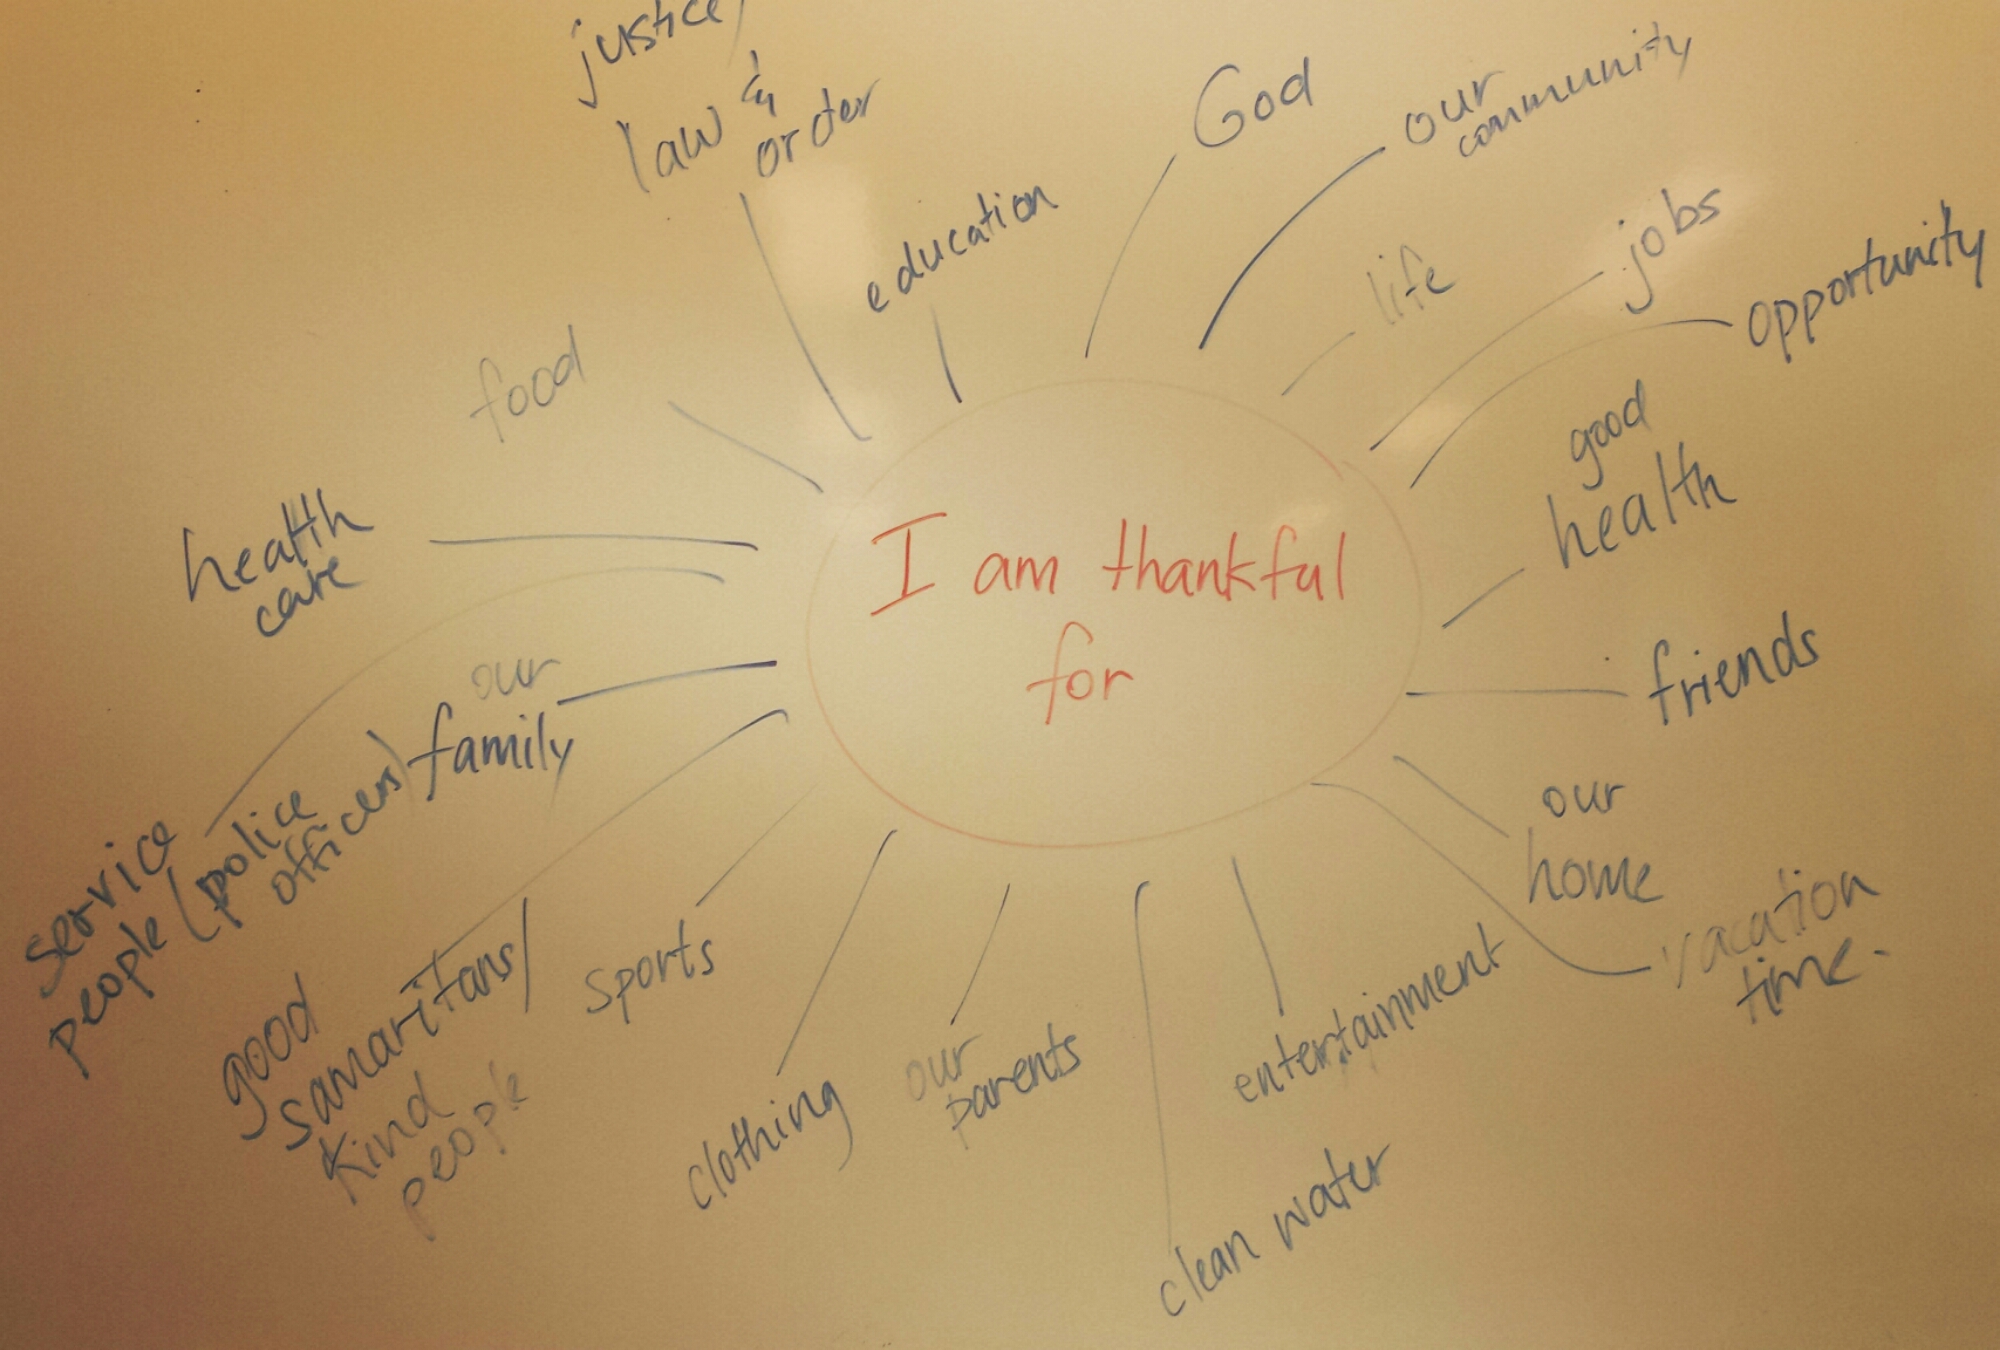 justice/
law &
order
education
God
our
community
life
jobs
opportunity
good
health
friends
our
home
vacation
time.
entertainment
clean water
our
parents
clothing
sports
good
samaritans/
kind
people
service
people (police
officers)
our
family
health
care
food
I am thankful
for